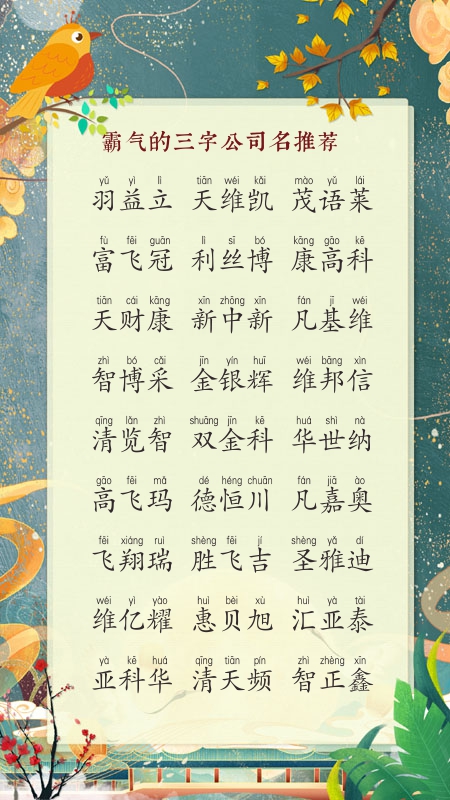 霸气的三字公司名推荐
yǔ yì lì tiān wéi kǎi mào yǔ lái
羽益立 天维凯 茂语莱
fù fēi guān lì sī bó kāng gāo kē
富飞冠 利丝博 康高科
tiān cái kāng xīn zhōng xīn fán jī wéi
天财康 新中新 凡基维
zhì bó cǎi jīn yín huī wéi bāng xìn
智博采 金银辉 维邦信
qīng lǎn zhì shuāng jīn kē huá shì nà
清览智 双金科 华世纳
gāo fēi mǎ dé héng chuān fán jiā ào
高飞玛 德恒川 凡嘉奥
fēi xiáng ruì shèng fēi jí shèng yǎ dí
飞翔瑞 胜飞吉 圣雅迪
wéi yì yào huì bèi xù huì yà tài
维亿耀 惠贝旭 汇亚泰
yà kē huá qīng tiān pín zhì zhèng xīn
亚科华 清天频 智正鑫